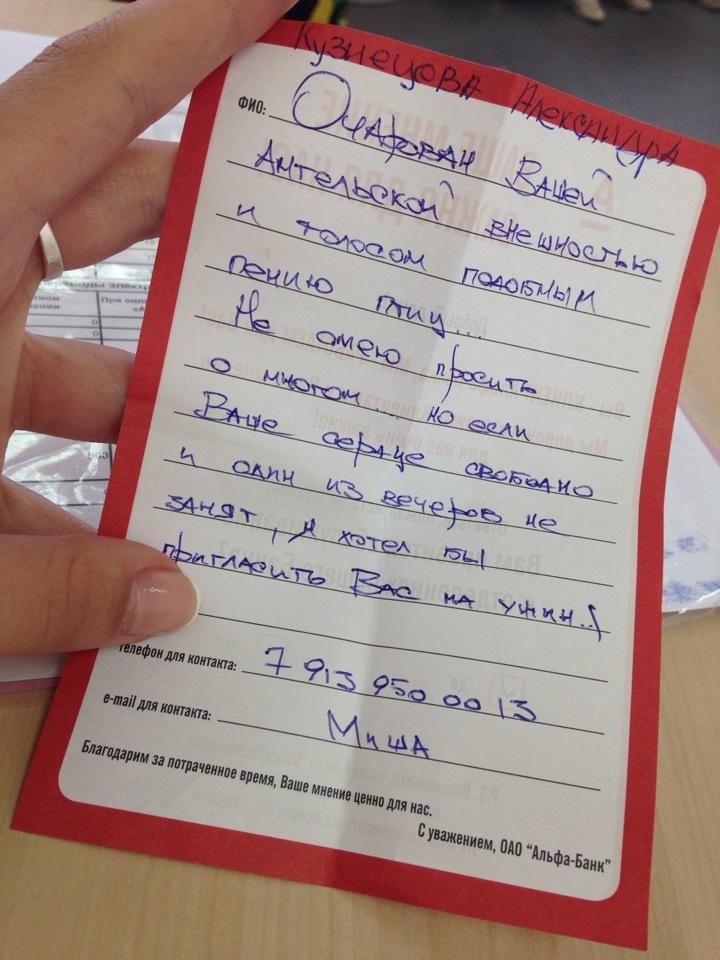 Кузнецова Александра
ФИО: Очарован Вашей
Ангельской внешностью
и голосом подобным
пению птиц...
Не смею просить
о многом... но если
Ваше сердце свободно
и один из вечеров не
занят, я хотел бы
пригласить Вас на ужин..!
телефон для контакта: 7 913 950 00 13
e-mail для контакта:
Миша
Благодарим за потраченное время, Ваше мнение ценно для нас.
С уважением, ОАО "Альфа-Банк"